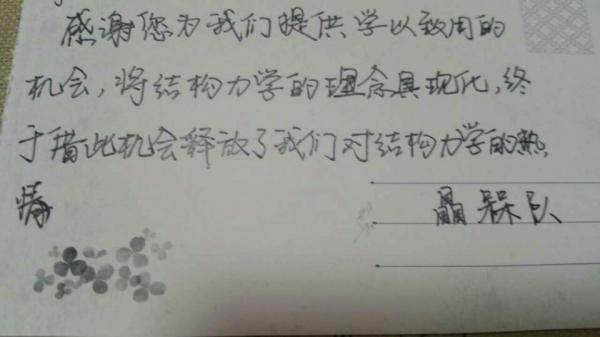 感谢您为我们提供学以致用的
机会,将结构力学的理念具现化,终
于藉此机会释放了我们对结构力学的热
情
槑队